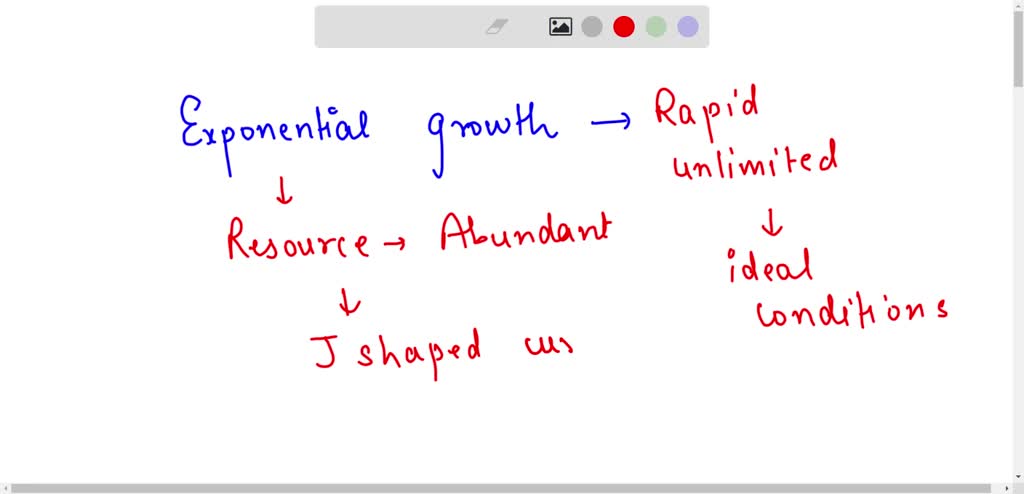 Exponential growth → Rapid
unlimited
↓
↓
Resource → Abundant
ideal
conditions
↓
J shaped cur